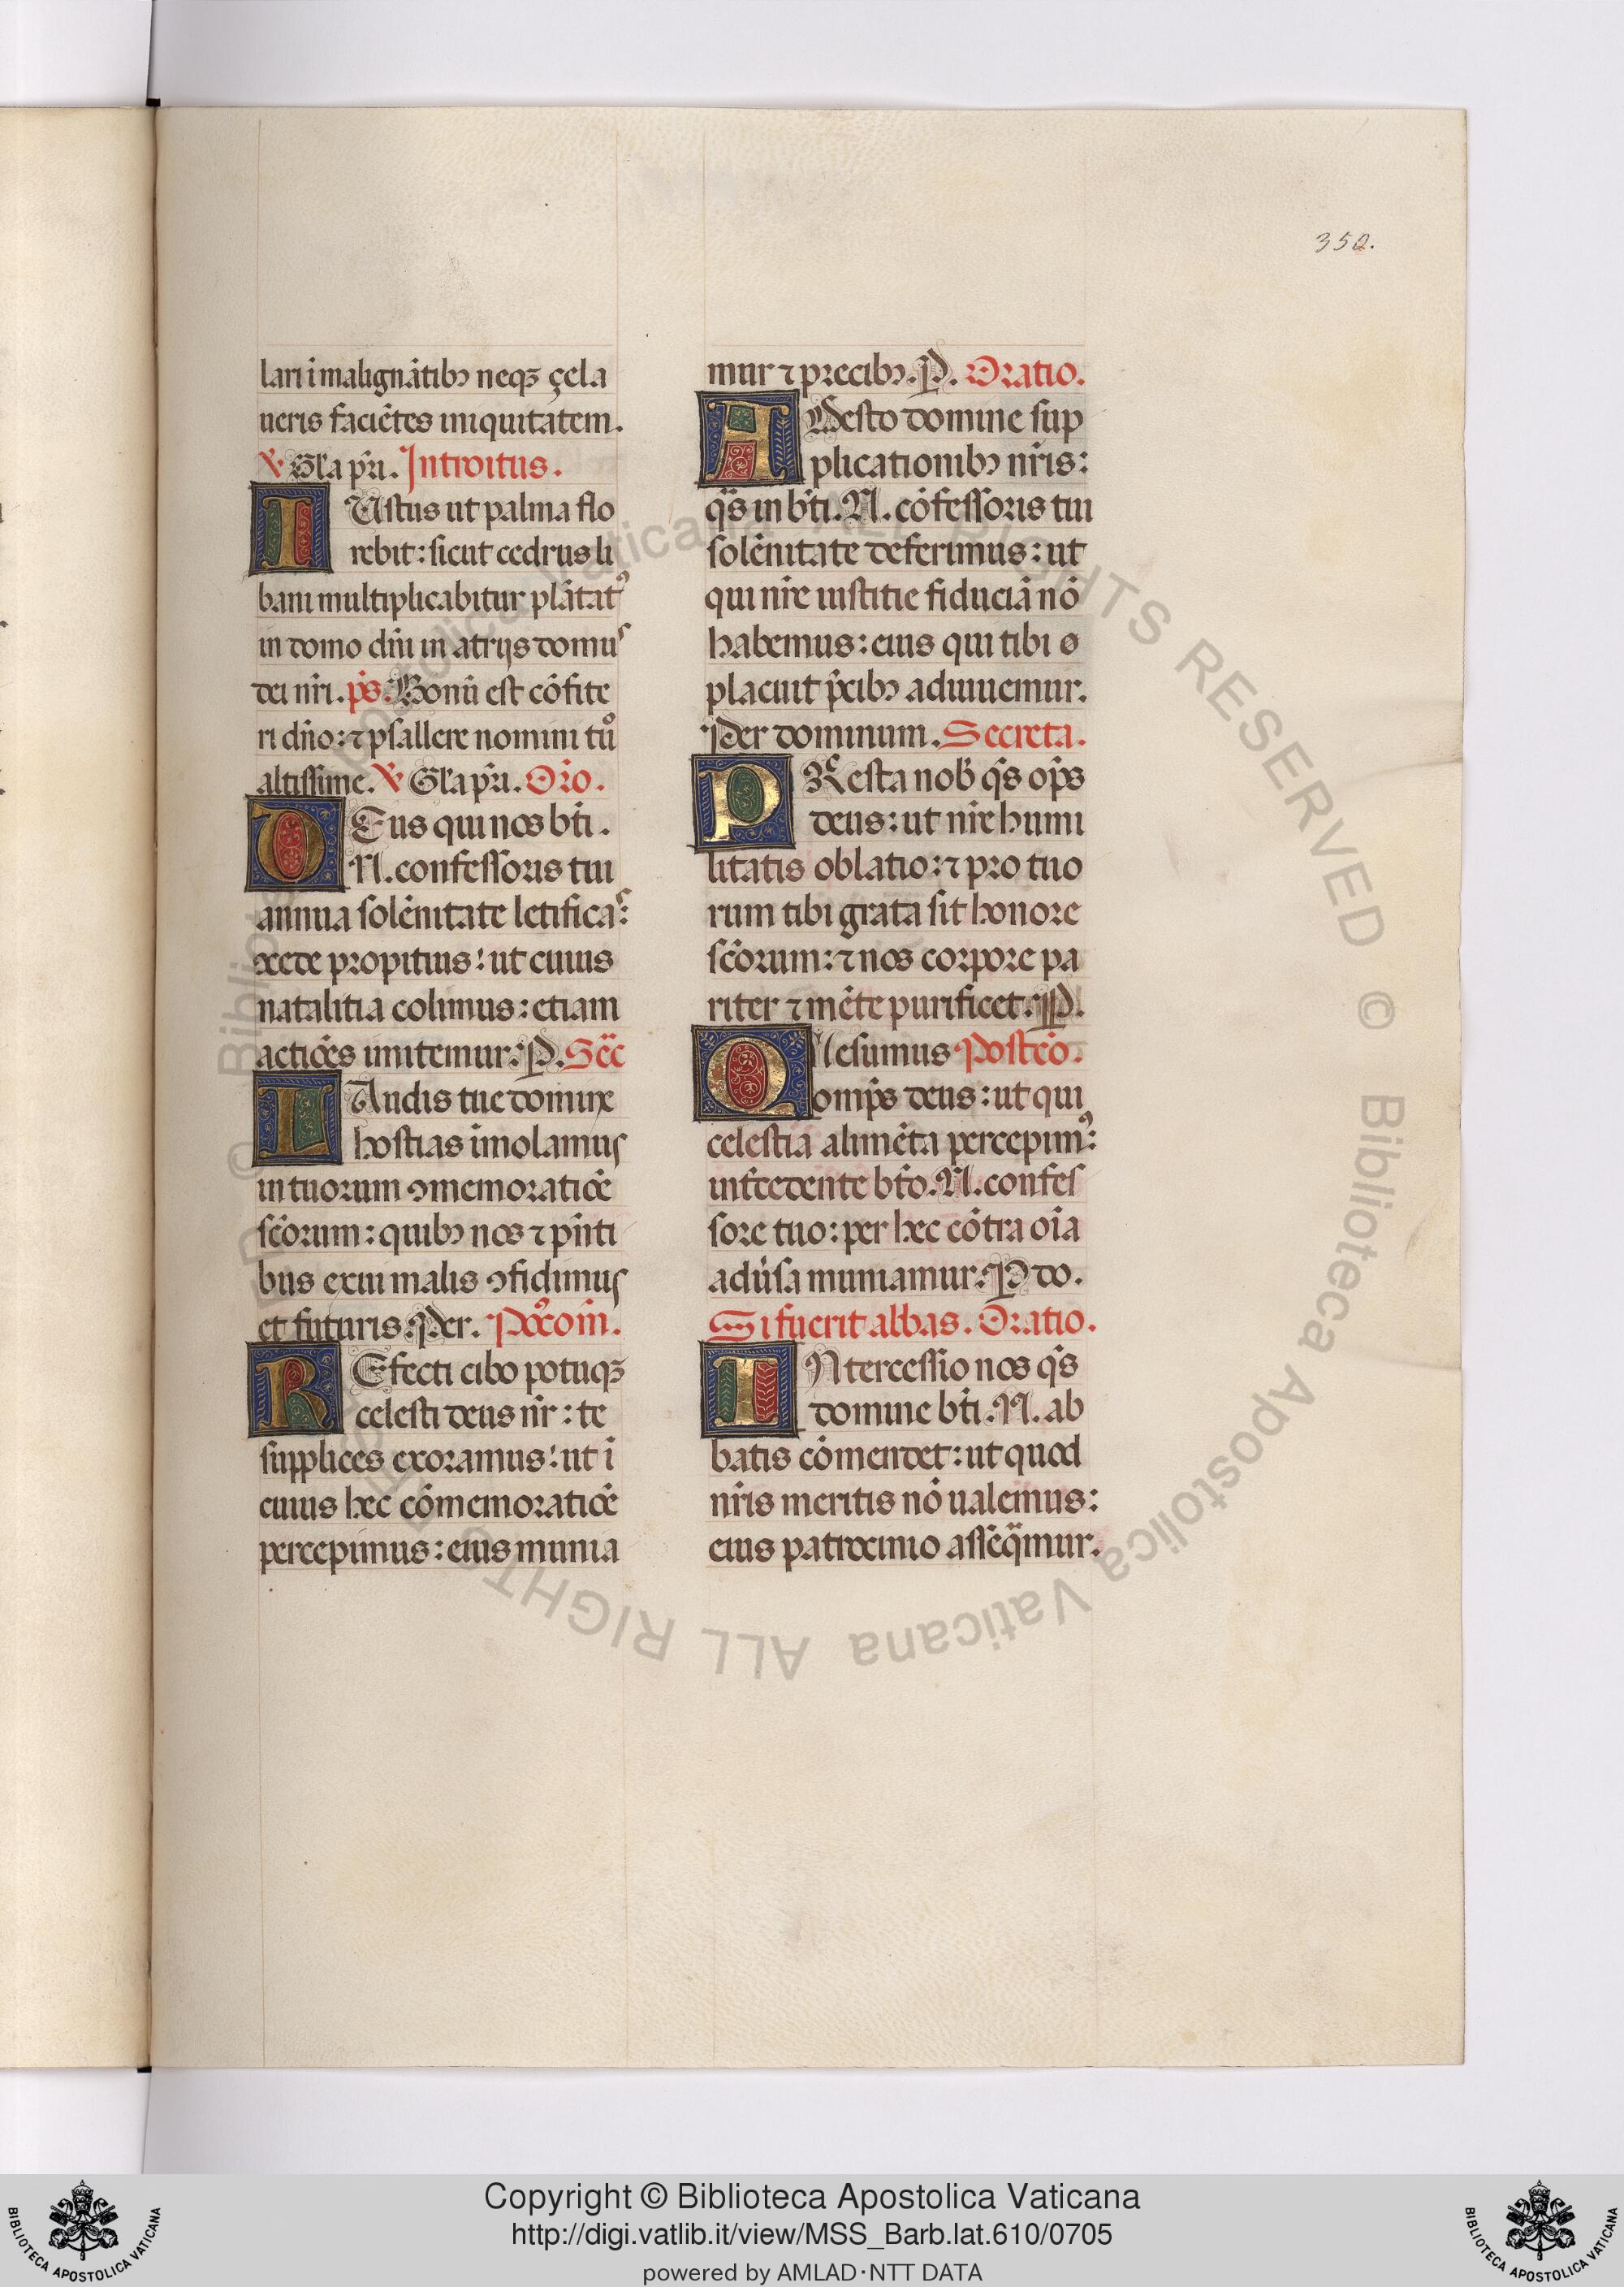 352.
lari i malignātibꝫ neqꝫ çela
ueris faciētes iniquitatem.
℣ Gl'a pr̄i. Introitus.
IUstus ut palma flo
rebit: sicut cedrus li
bani multiplicabitur plātatꝰ
in domo dñi in atrijs domuˢ
dei nr̄i. pˢ. Bonū est cōfite
ri dño: ⁊ psallere nomini tuº
altissime. ℣ Gl'a pr̄i. Oro.
DEus qui nos bt̄i.
N. confessoris tui
annua solēnitate letificaˢ:
ɔcede propitius: ut cuius
natalitia colimus: etiam
actiōes imitemur: P. Sec̄
LAudis tue domine
hostias īmolamus
in tuorum ɔmemoratiōe
sc̄orum: quibꝫ nos ⁊ pn̄ti
bus exui malis ɔfidimus
et futuris: Per. Poꝰcom̄.
REfecti cibo potuqꝫ
celesti deus nr̄: te
supplices exoramus: ut ī
cuius hec cōmemoratiōe
percepimus: eius munia
mur ⁊ precibꝫ. P. Oratio.
ADesto domine sup
plicationibꝫ nr̄is:
qˢ in bt̄i. N. cōfessoris tui
solēnitate deferimus: ut
qui nr̄e iustitie fiduciā nō
habemus: eius qui tibi ø
placuit p̄cibꝫ adiuuemur.
Per dominum. Secreta.
PResta nob̄ qˢ op̄s
deus: ut nr̄e humi
litatis oblatio: ⁊ pro tuo
rum tibi grata sit honore
sc̄orum: ⁊ nos corpore pa
riter ⁊ mēte purificet: P.
QUesumus Postcō.
omp̄s deus: ut qui
celestia alimēta percepimꝰ:
int̄cedente bt̄o. N. confes
sore tuo: per hec cōtra oīa
adūsa muniamur: P do.
Si fuerit abbas. Oratio.
INtercessio nos qˢ
domine bt̄i. N. ab
batis cōmendet: ut quod
nr̄is meritis nō ualemus:
eius patrocinio assēq̄mur.
© Biblioteca Apostolica Vaticana ALL RIGHTS RESERVED
Copyright © Biblioteca Apostolica Vaticana
http://digi.vatlib.it/view/MSS_Barb.lat.610/0705
powered by AMLAD·NTT DATA
BIBLIOTECA APOSTOLICA VATICANA
BIBLIOTECA APOSTOLICA VATICANA